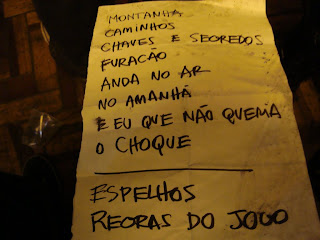 MONTANHA
CAMINHOS
CHAVES E SEGREDOS
FURACÃO
ANDA NO AR
NO AMANHÃ
E EU QUE NÃO QUERIA
O CHOQUE
ESPELHOS
REGRAS DO JOGO